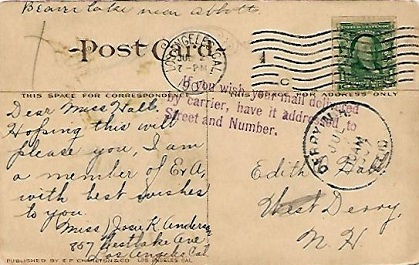 Beaver lake near Abbott
Post Card
LOS ANGELES, CAL.
7-PM
THIS SPACE FOR CORRESPONDENCE
THIS SPACE FOR ADDRESS ONLY
If you wish your mail delivered
by carrier, have it addressed to
Street and Number.
Dear Miss Hall,
Hoping this will
please you, I am
a member of ExA
with best wishes
to you.
Miss Josie K. Anderson
857 Westlake Ave
Los Angeles Cal
DERRY N.H.
Edith
West Derry,
N. H.
PUBLISHED BY E. P. CHARLTON & CO. LOS ANGELES CAL.